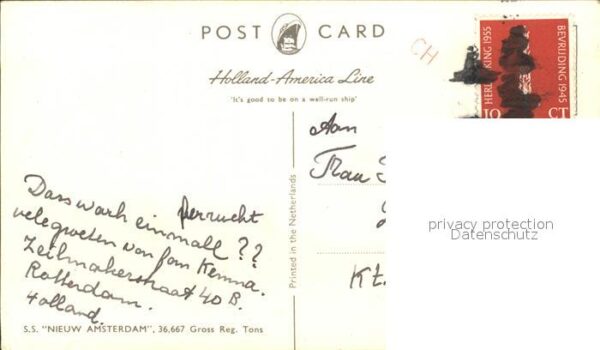 POST CARD
CH
HERDENKING 1955
BEVRIJDING 1945
10 CT
Holland-America Line
'It's good to be on a well-run ship'
Aan
Frau
Kt.
Dass warh einmall ferrucht ??
velegroeten van fam Kemna.
Zeilmakerstraat 40 B.
Rotterdam.
Holland.
Printed in the Netherlands
S.S. "NIEUW AMSTERDAM", 36,667 Gross Reg. Tons
privacy protection
Datenschutz